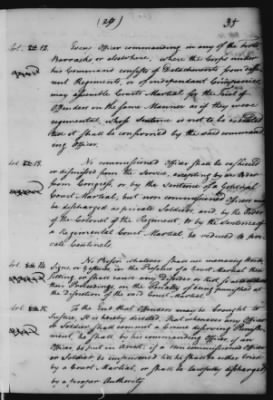 (29) 35
Art. 12. Every Officer commanding in any of the Forts
Barracks or elsewhere, where the Corps under
his Command consists of Detachments from different
Regiments, or of independent Companies
may assemble Courts Martial for the Trial of
Offenders in the same Manner as if they were
regimental, whose Sentence is not to be executed
till it shall be confirmed by the said commanding
Officer.
Art. 13. No commissioned Officer shall be cashiered
or dismissed from the Service, excepting by an Order
from Congress, or by the Sentence of a General
Court Martial, but non commissioned Officers may
be discharged as private Soldiers, and, by the Order
of the Colonel of the Regiment, or by the Sentence of
a Regimental Court Martial, be reduced to private
Centinels.
Art. 14. No Person whatever shall use menacing Words
Signs, or gestures, in the Presence of a Court Martial then
sitting, or shall cause any Disorder or Riot, so as to disturb
their Proceedings, on the Penalty of being punished at
the discretion of the said Court Martial.
Art. 15. To the End that Offenders may be brought to
Justice, It is hereby directed, That whenever any Officer
or Soldier shall commit a Crime deserving Punishment,
he shall, by his commanding Officer, if an
Officer be put in Arrest, if a non commissioned Officer
or Soldier be imprisoned till he shall be either tried
by a Court Martial, or shall be lawfully discharged
by a proper Authority